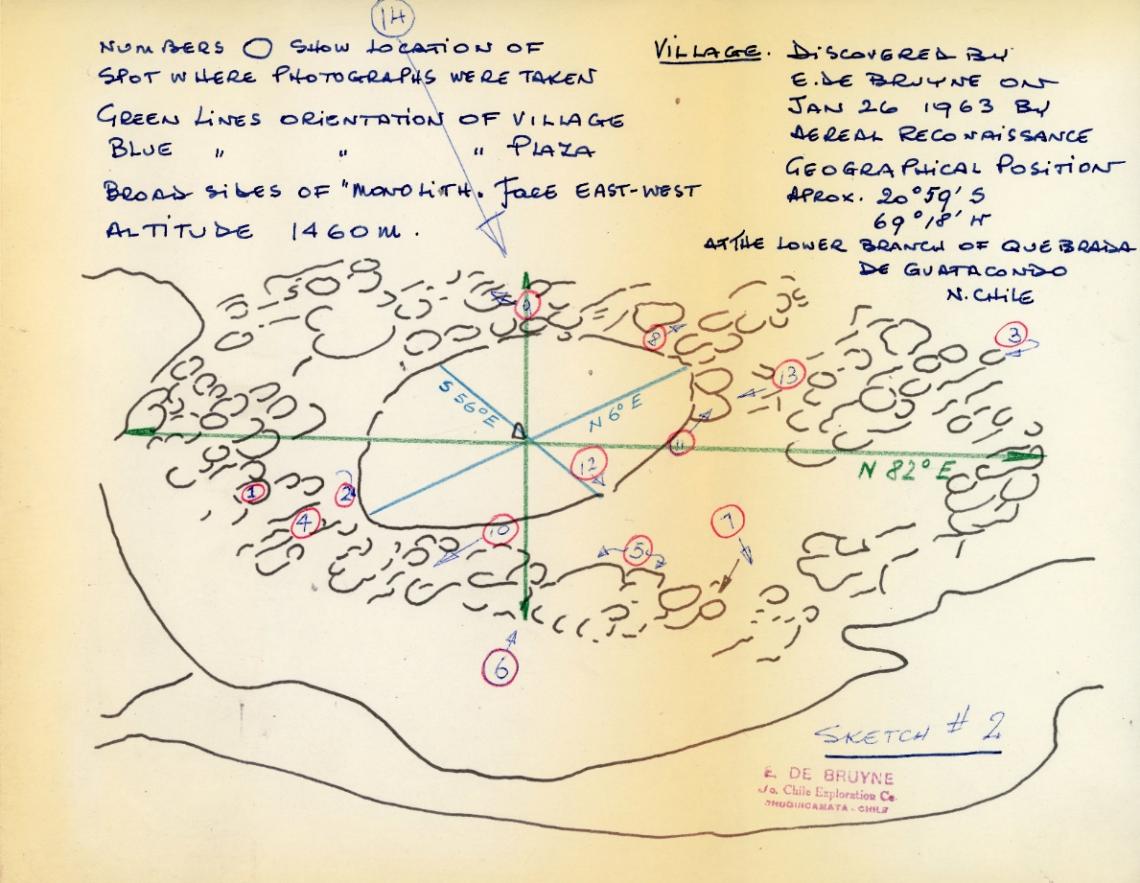 14
NUMBERS ○ SHOW LOCATION OF
SPOT WHERE PHOTOGRAPHS WERE TAKEN
GREEN LINES ORIENTATION OF VILLAGE
BLUE " " " PLAZA
BROAD SIDES OF "MONOLITH. FACE EAST-WEST
ALTITUDE 1460 M.
VILLAGE. DISCOVERED BY
E. DE BRUYNE ON
JAN 26 1963 BY
AEREAL RECONAISSANCE
GEOGRAPHICAL POSITION
APROX. 20°59' S
69°18' W
AT THE LOWER BRANCH OF QUEBRADA
DE GUATACONDO
N. CHILE
9
8
3
13
S 56° E
N 6° E
11
N 82° E
12
1
2
4
10
5
7
6
SKETCH # 2
E. DE BRUYNE
c/o. Chile Exploration Co.
CHUQUICAMATA - CHILE